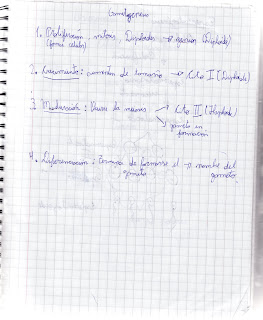 Gametogénesis
1. Proliferación, mitosis, Diploides → gonias (Diploide)
(forma células)
2. Crecimiento: aumentan de tamaño → Cto I (Diploide)
3. Maduración: Ocurre la meiosis → Cto II (Haploide)
→ gameto en
formación
4. Diferenciación: termina de formarse el → nombre del
gameto gameto